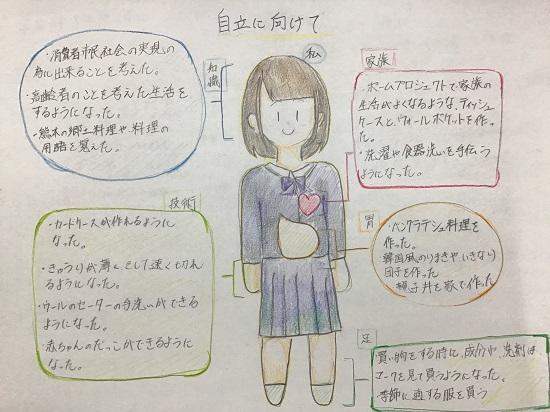 自立に向けて
私
知識
・消費者市民社会の実現の
為に出来ることを考えた。
・高齢者のことを考えた生活を
するようになった。
・熊本の郷土料理や料理の
用語を覚えた。
家族
・ホームプロジェクトで家族の
生活がよくなるような、ティッシュ
ケースと、ウォールポケットを作っ
た。
・洗濯や食器洗いを手伝う
ようになった。
技術
・カードケースが作れるように
なった。
・きゅうりが薄く、そして速く切れ
るようになった。
・ウールのセーターの手洗いができる
ようになった。
・赤ちゃんのだっこができるように
なった。
胃
・バングラデシュ料理を
作った。
韓国風のりまきや、いきなり
団子を作った
親子丼を家で作った
足
買い物をする時に、成分や、洗剤は
マークを見て買うようになった。
季節に適する服を買う